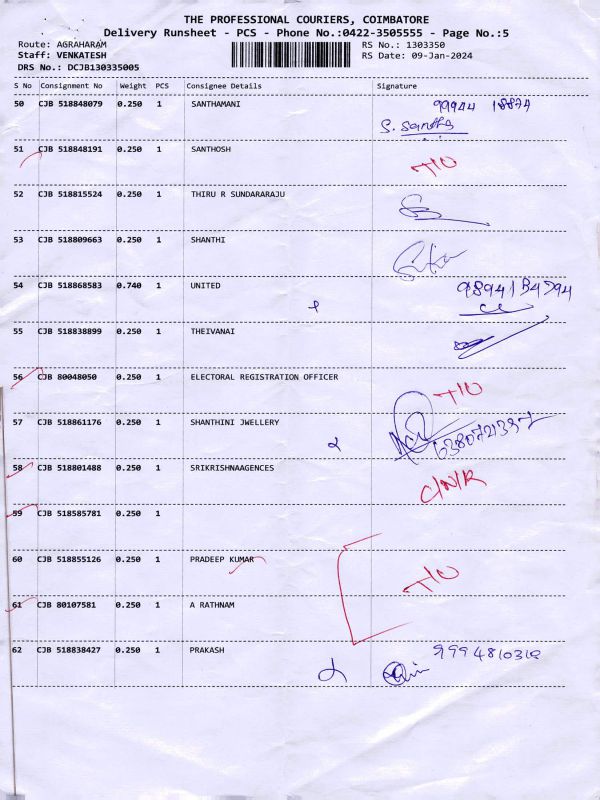 THE PROFESSIONAL COURIERS, COIMBATORE
Delivery Runsheet - PCS - Phone No.:0422-3505555 - Page No.:5
Route: AGRAHARAM RS No.: 1303350
Staff: VENKATESH RS Date: 09-Jan-2024
DRS No.: DCJB130335005
S No Consignment No Weight PCS Consignee Details Signature
50 CJB 518848079 0.250 1 SANTHAMANI 99944 18874
S. Santha
51 CJB 518848191 0.250 1 SANTHOSH T/O
52 CJB 518815524 0.250 1 THIRU R SUNDARARAJU
53 CJB 518809663 0.250 1 SHANTHI
54 CJB 518868583 0.740 1 UNITED
55 CJB 518838899 0.250 1 THEIVANAI
56 CJB 80048050 0.250 1 ELECTORAL REGISTRATION OFFICER T/O
57 CJB 518861176 0.250 1 SHANTHINI JWELLERY
58 CJB 518801488 0.250 1 SRIKRISHNAAGENCES C/N/R
59 CJB 518585781 0.250 1
60 CJB 518855126 0.250 1 PRADEEP KUMAR T/O
61 CJB 80107581 0.250 1 A RATHNAM
62 CJB 518838427 0.250 1 PRAKASH 9994810310